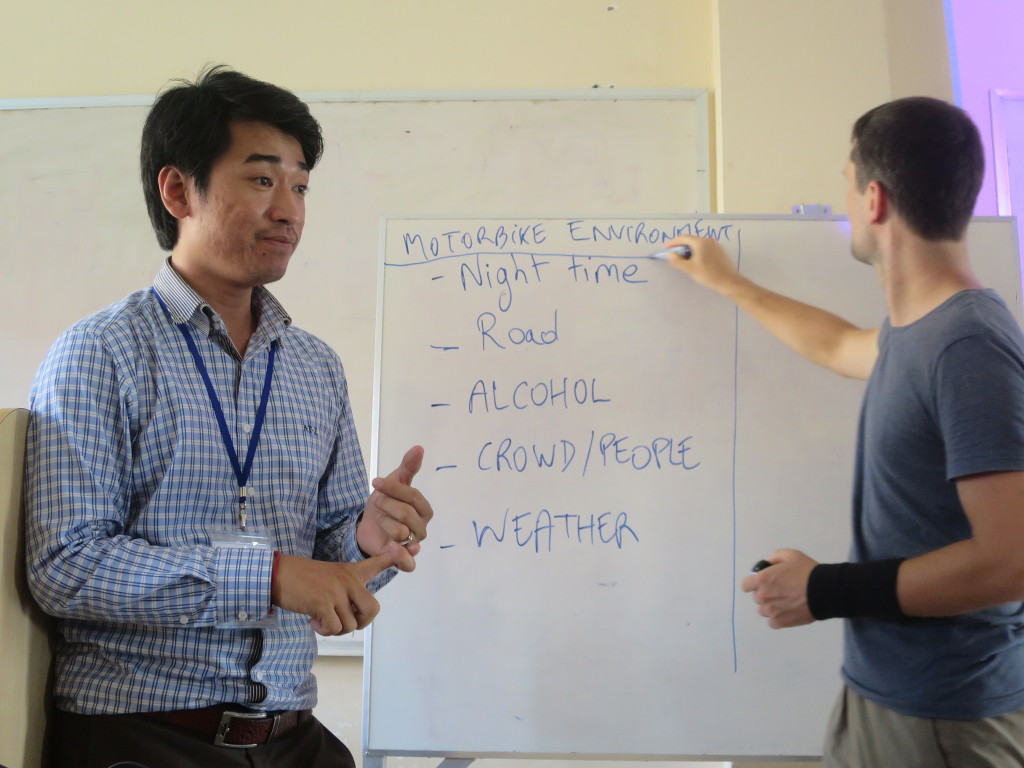 MOTORBIKE ENVIRONMENT
- Night time
- Road
- ALCOHOL
- CROWD/PEOPLE
- WEATHER